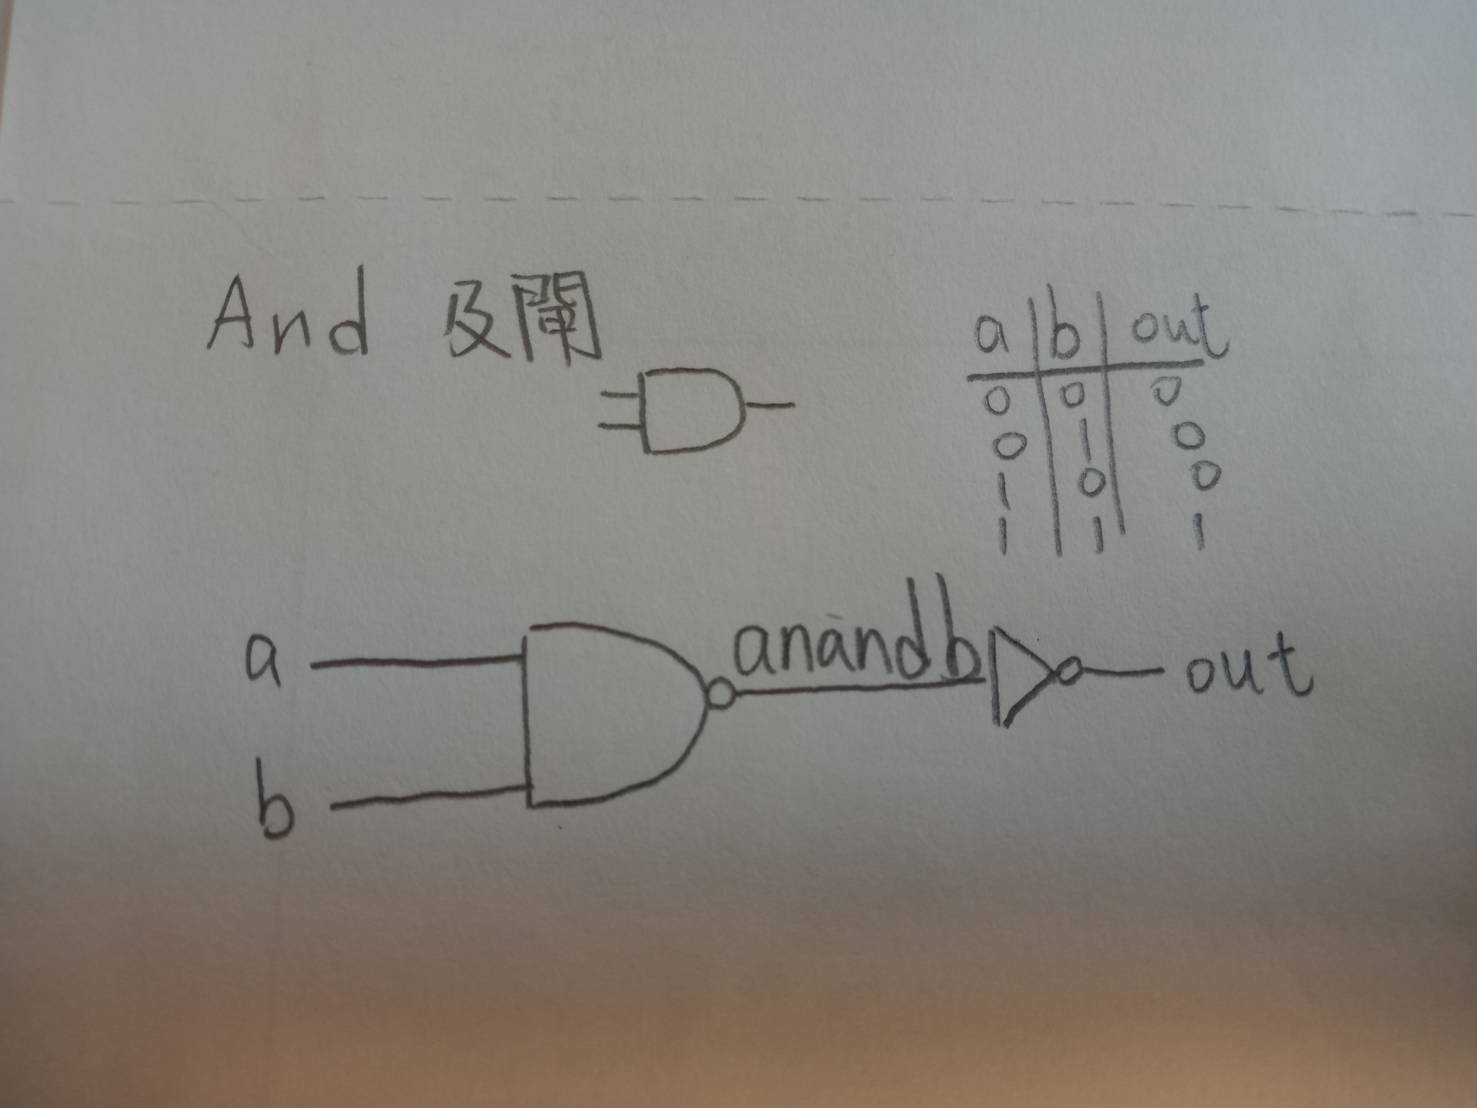 And 及閘
a b out
0 0 0
0 1 0
1 0 0
1 1 1
a
anandb
out
b